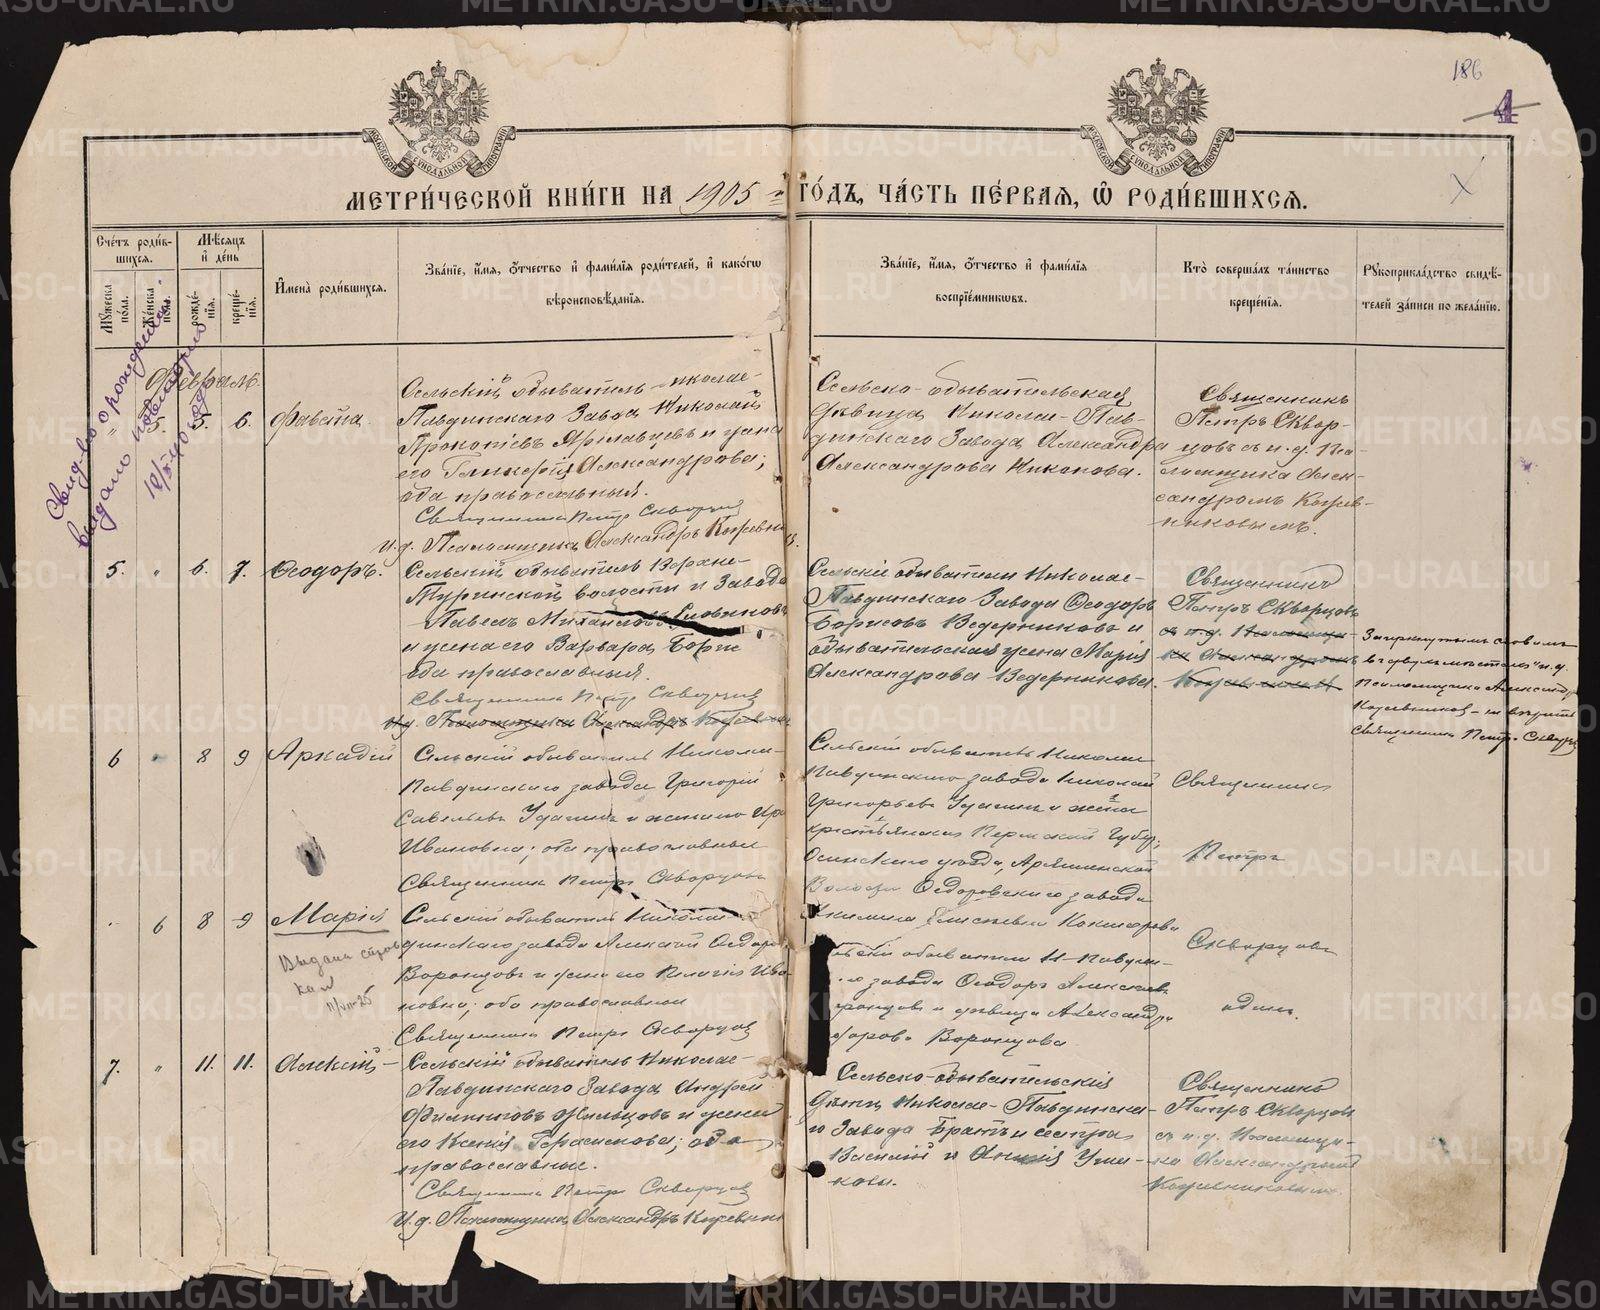 186
4
МЕТРИ́ЧЕСКОЙ КНИ́ГИ НА 1905 ГО́ДЪ, ЧА́СТЬ ПЕ́РВАЯ, Ѽ РОДИ́ВШИХСЯ.
Сче́тъ роди́в-
шихся.
Мꙋ́жеска по́ла.
Же́нска по́ла.
Мѣ́сяцъ и҆ де́нь
рожде́нїя.
креще́нїя.
И҆мена̀ роди́вшихся.
Зва́нїе, и҆́мя, ѻ҆́тчество и҆ фами́лїя роди́телей, и҆ како́гѡ
вѣроисповѣ́данїя.
Зва́нїе, и҆́мя, ѻ҆́тчество и҆ фами́лїя
воспрїе́мникѡвъ.
Кто̀ соверша́лъ та́инство
креще́нїя.
Рꙋкоприкла́дство свидѣ́-
телей за́писи по жела́нїю.
Свид-во о рождении
выдано повторно
Февраль
" 5. 5. 6. Фавста
Сельскій обыватель Николае-
Павдинскаго Завода Николай
Прокопіевъ и жена
его Гликерія Александрова;
оба православный.
Священникъ Петръ Скворцовъ
И.д. Псаломщика Александръ Кожевниковъ.
Сельско-обывательская
дѣвица Николае-Пав-
динскаго Завода Александра
Александрова Никонова.
Священникъ
Петръ Сквор-
цовъ съ и.д. Пса-
ломщика Алек-
сандромъ Кожев-
никовымъ.
5. " 6. 7. Ѳеодоръ.
Сельскій обыватель Верхне-
Туринской волости и Завода
Павелъ Михайловъ
и жена его Варвара Борис
оба православный.
Священникъ Петръ Скворцовъ
И.д. Псаломщика Александръ Кожевник
Сельскіе обыватели Николае-
Павдинскаго Завода Ѳеодоръ
Борисовъ Ведерниковъ и
обывательская жена Марія
Александрова Ведерникова.
Священникъ
Петръ Скворцовъ
съ и.д. Псаломщи-
ка Александромъ
Кожевниковым
Зачеркнутымъ словамъ
въ двухъ мѣстахъ "и.д.
Псаломщика Александр
Кожевников - не вѣрить
Священникъ Петръ Скворц
6 " 8 9 Аркадій
Сельскій обыватель Никола-
Павдинскаго завода Григорій
Савельевъ и жена его Ири
Ивановна; оба православные
Священникъ Петръ Скворцовъ
Сельскій обыватель Никола
Павдинскаго завода Николай
Григорьевъ и жена
крестьянская Пермской губ.,
Осинскаго уѣзда,
Волости Ѳедоровскаго завода
Священникъ
Петръ
Скворцовъ
одинъ.
" 6 8 9 Марія
Выдана справ
ка
11/VIII-25
Сельскій обыватель Никола
динскаго завода Алексѣй Ѳедоро
Воронцовъ и жена его Пелагія Ива
новна; оба православные
Священникъ Петръ Скворцовъ
обыватель Н-Павдин-
го завода Ѳеодоръ Алексѣевъ
ронцовъ и дѣвица Александра
Воронцова
7. " 11. 11. Алексій
Сельскій обыватель Николае-
Павдинскаго Завода Андрей
Филипповъ и жена
его Ксенія Герасимова; оба
православные.
Священникъ Петръ Скворцовъ
И.д. Псаломщика Александръ Кожевник
Сельско-обывательскія
дѣти Николае-Павдинска-
го Завода братъ и сестра
Василій и Анисія Уша-
ковы.
Священникъ
Петръ Скворцовъ
съ и.д. Псаломщи-
ка Александромъ
Кожевниковымъ.
METRIKI.GASO-URAL.RU